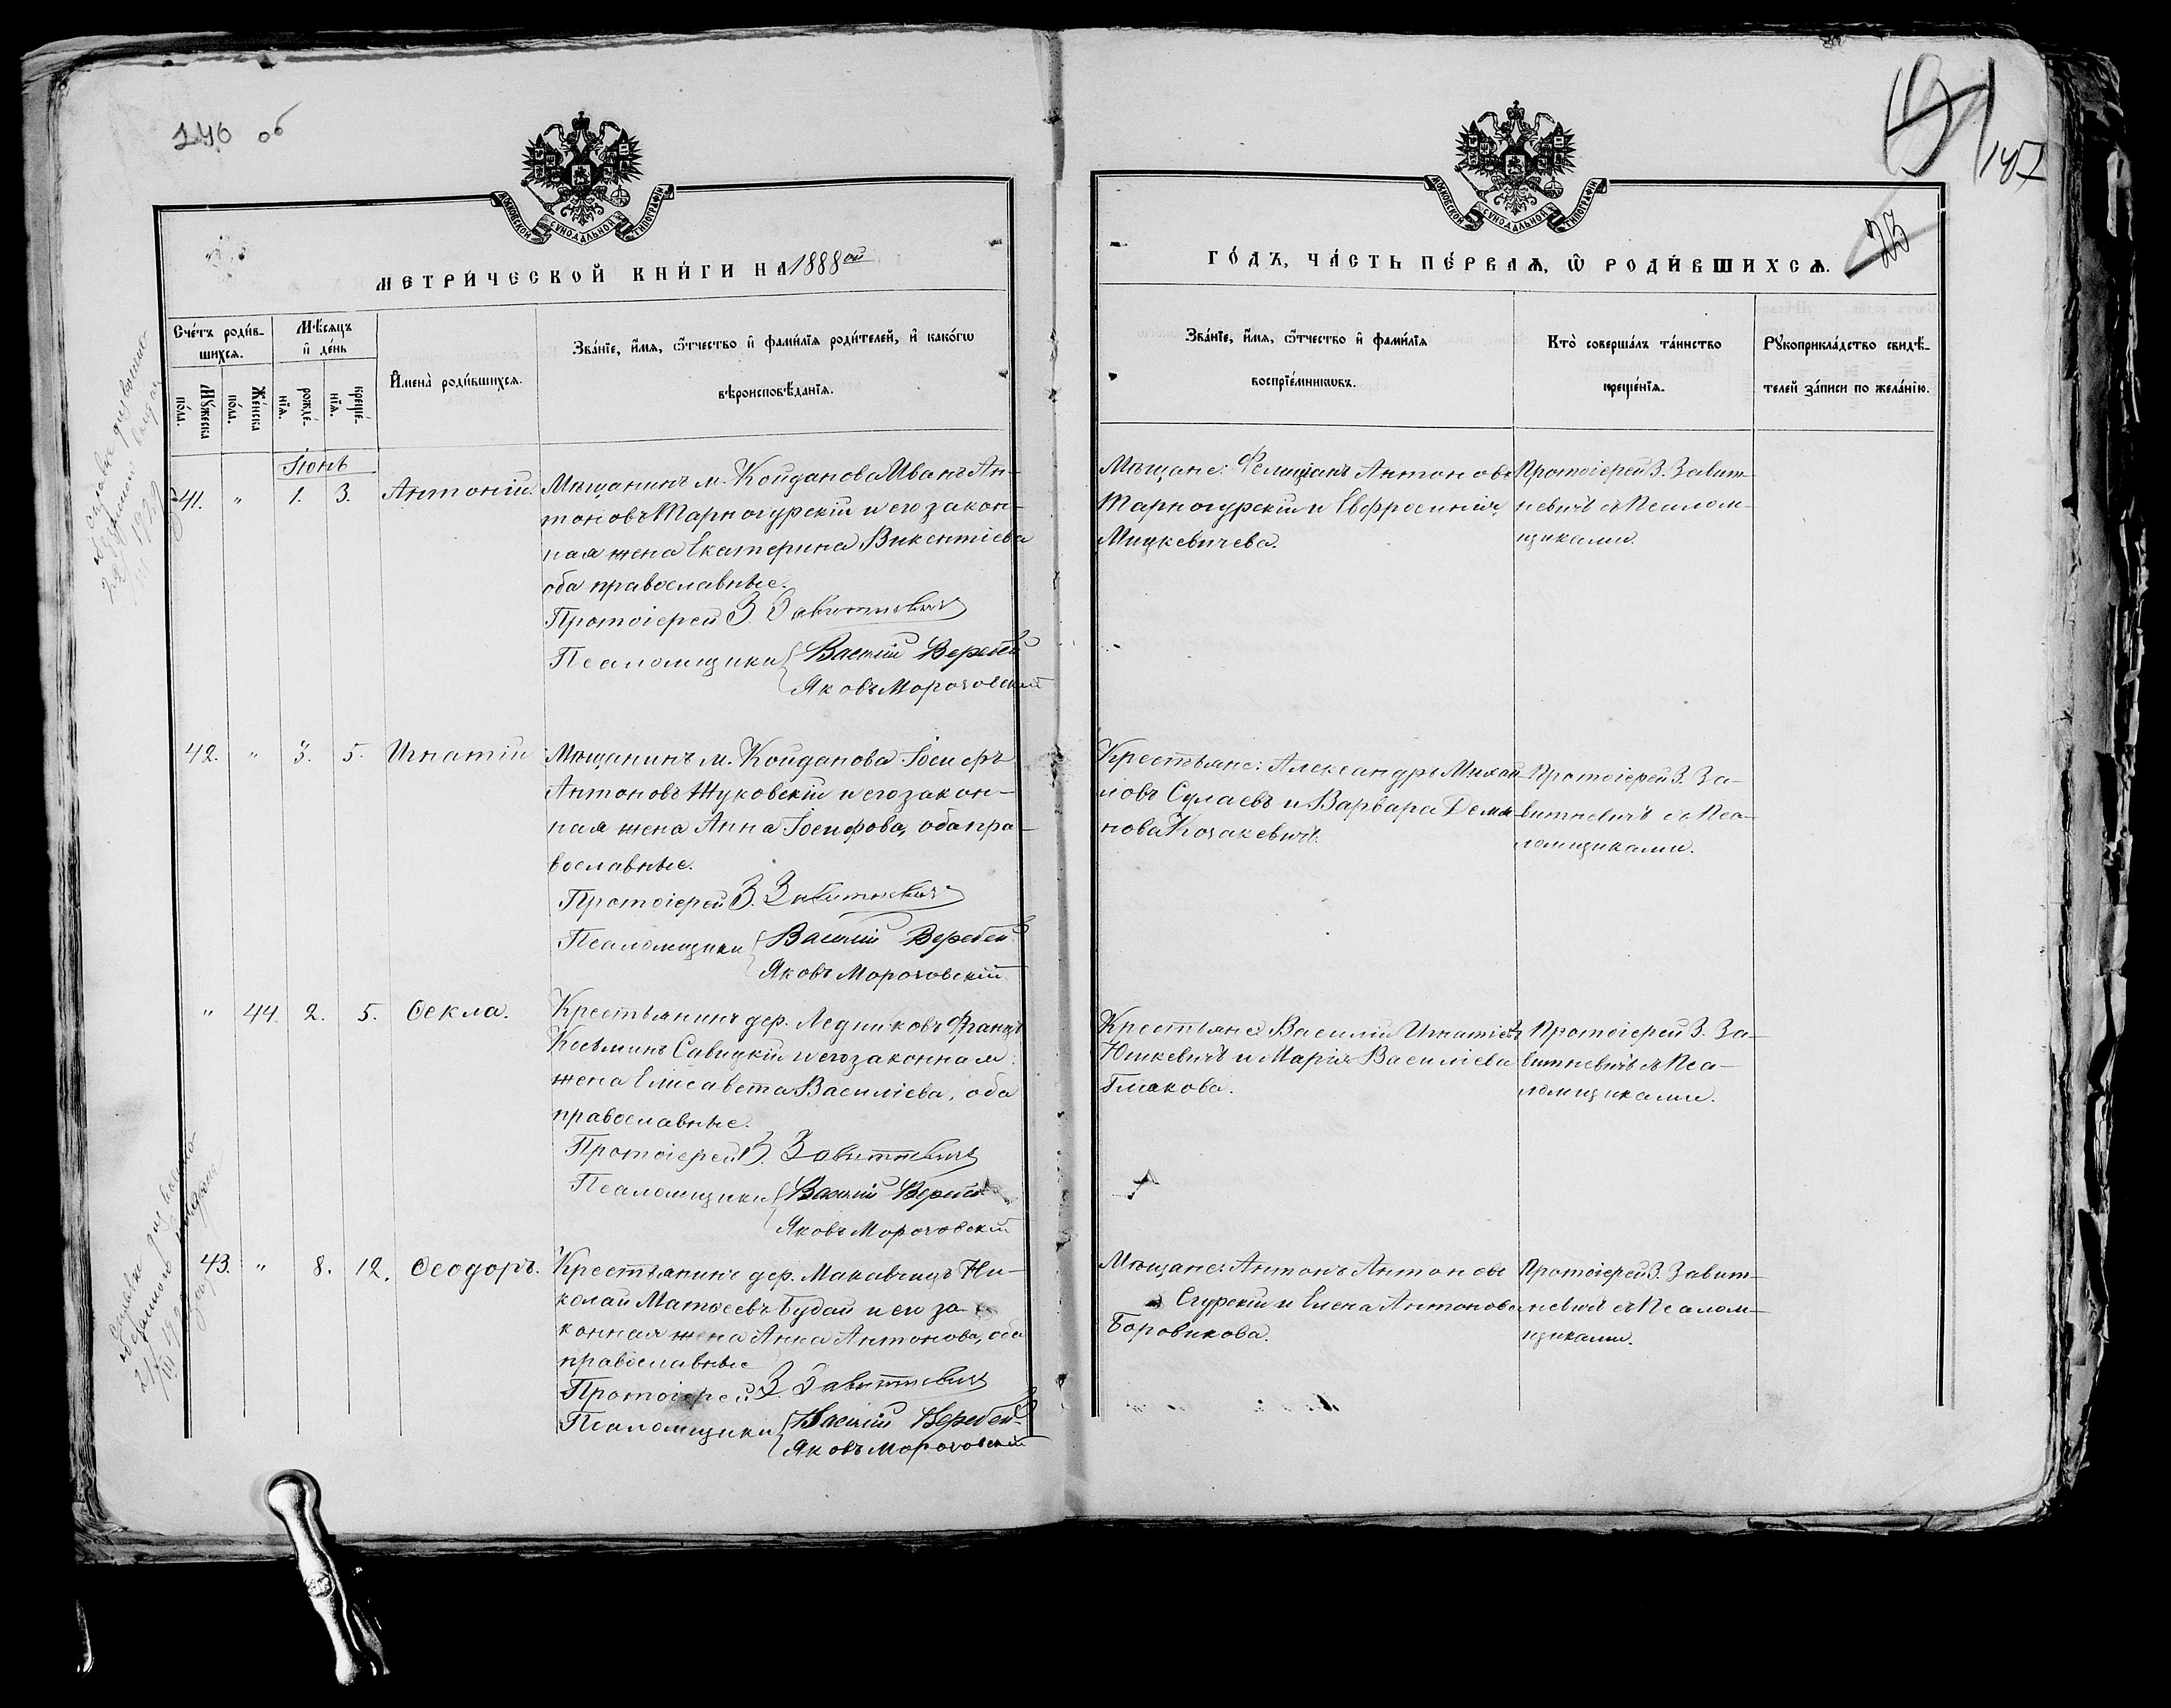 246 об
МОСКОВСКОЙ СѴНОДАЛЬНОЙ ТИПОГРАФІИ
МЕТРИ́ЧЕСКОЙ КНИ́ГИ НА 1888ой
Сче́тъ роди́в-
шихся.
Мѣ́сяцъ
и҆ де́нь
И҆мена̀ роди́вшихся.
Зва́нїе, и҆́мя, ѻ҆́тчество и҆ фами́лїя роди́телей, и҆ како́гѡ
вѣроисповѣ́данїя.
Мꙋ́жеска
по́ла.
Же́нска
по́ла.
рожде́-
нїя.
креще́-
нїя.
Іюнь
41. " 1. 3. Антоній.
Мѣщанинъ м. Койданова Иванъ Ан-
тоновъ Тарногурскій и его закон-
ная жена Екатерина Викентіева
оба православные.
Протоіерей З. Завитневичъ
Псаломщики Василій Веребей
Яковъ Мороховскій
42. " 3. 5. Игнатій
Мѣщанинъ м. Койданова Іосифъ
Антоновъ Жуковскій и его закон-
ная жена Анна Іосифова, оба пра-
вославные.
Протоіерей З. Завитневичъ
Псаломщики Василій Веребей
Яковъ Мороховскій
" 44. 2. 5. Ѳекла.
Крестьянинъ дер. Ледниковъ Францъ
Косьминъ Савицкій и его законная
жена Елисавета Василіева, оба
православные.
Протоіерей З. Завитневичъ
Псаломщики Василій Веребей
Яковъ Мороховскій
43. " 8. 12. Ѳеодоръ.
Крестьянинъ дер. Макавчицъ Ни-
колай Матѳеевъ Будай и его за-
конная жена Анна Антонова, оба
православные
Протоіерей З. Завитневичъ
Псаломщики Василій Веребей
Яковъ Мороховскій
147
23
МОСКОВСКОЙ СѴНОДАЛЬНОЙ ТИПОГРАФІИ
ГО́ДЪ, ЧА́СТЬ ПЕ́РВАѦ, Ѽ РОДИ́ВШИХСѦ.
Зва́нїе, и҆́мя, ѻ҆́тчество и҆ фами́лїя
воспрїе́мникѡвъ.
Кто̀ соверша́лъ та́инство
креще́нїя.
Рꙋкоприкла́дство свидѣ́-
телей за́писи по жела́нїю.
Мѣщане: Фелиціанъ Антоновъ
Тарногурскій и Евфросинія
Мицкевичева.
Протоіерей З. Завит-
невичъ съ Псалом-
щиками.
Крестьяне: Александръ Михай-
ловъ Сулаевъ и Варвара Демья-
нова Козакевичъ.
Протоіерей З. За-
витневичъ съ Пса-
ломщиками.
Крестьяне: Василій Игнатіевъ
Юшкевичъ и Марія Василіева
Глакова.
Протоіерей З. За-
витневичъ съ Пса-
ломщиками.
Мѣщане: Антонъ Антоновъ
Сгурскій и Елена Антонова
Боровикова.
Протоіерей З. Завит-
невичъ съ Псалом-
щиками.